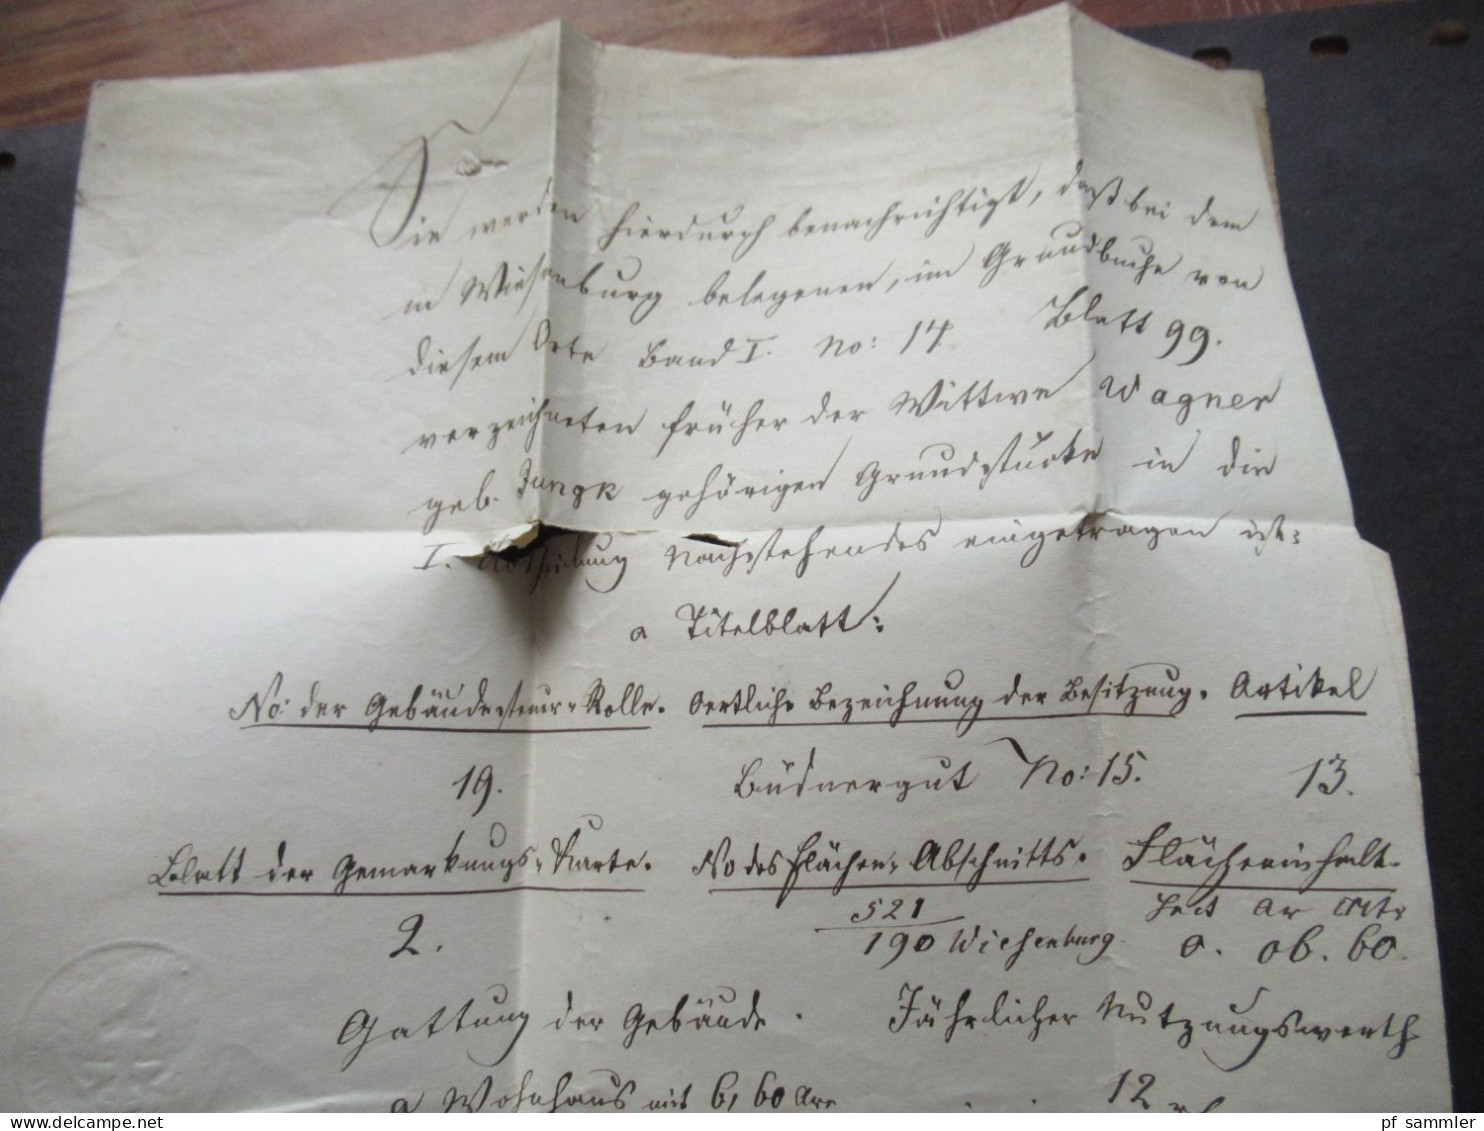 Sie werden hierdurch benachrichtigt, daß bei dem
in Wiesenburg belegenen, im Grundbuche von
diesem Orte Band I. No: 14 Blatt 99.
verzeichneten früher der Wittwe Wagner
geb. Jungk gehörigen Grundstücke in die
I. Abtheilung Nachstehendes eingetragen ist:
a Titelblatt:
No: der Gebäudesteuer-Rolle. Oertliche Bezeichnung der Besitzung. Artikel
19. Büdnergut No: 15. 13.
Blatt der Gemarkungs-Karte. No des Flächen-Abschnitts. Flächeninhalt
Hect Ar Mtr
2. 521/190 Wiesenburg. 0. 06. 60.
Gattung der Gebäude. Jährlicher Nutzungswerth
a Wohnhaus mit 6,60 Are 12
pf_sammler